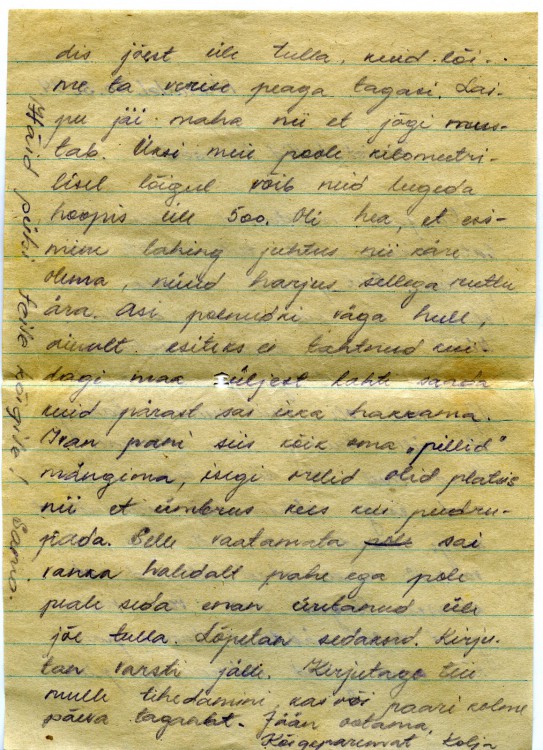 dis jõest üle tulla, kuid lõi-
me ta verise peaga tagasi. Lai-
pu jäi maha nii et jõgi mus-
tab. Üksi meie poole kilomeetri-
lisel lõigul võib neid lugeda
hoopis üle 500. Oli hea, et esi-
mene lahing juhtus nii käre
olema, nüüd harjus sellega ruttu
ära. Asi polnudki väga hull,
ainult esiteks ei tahtnud kui-
dagi maa küljest lahti saada
kuid pärast sai ikka hakkama.
Ivan pani siis kõik oma „pillid"
mängima, isegi orelid olid platsis
nii et ümbrus kees kui pudru-
pada. Selle vaatamata sai
vanka haledalt pähe ega pole
peale seda enam üritanud üle
jõe tulla. Lõpetan sedakord. Kirju-
tan varsti jälle. Kirjutage teie
mulle tihedamini, kas või paari kolme
päeva tagant. Jään ootama.
Kõigeparemat
Häid pühi teile kõigile!